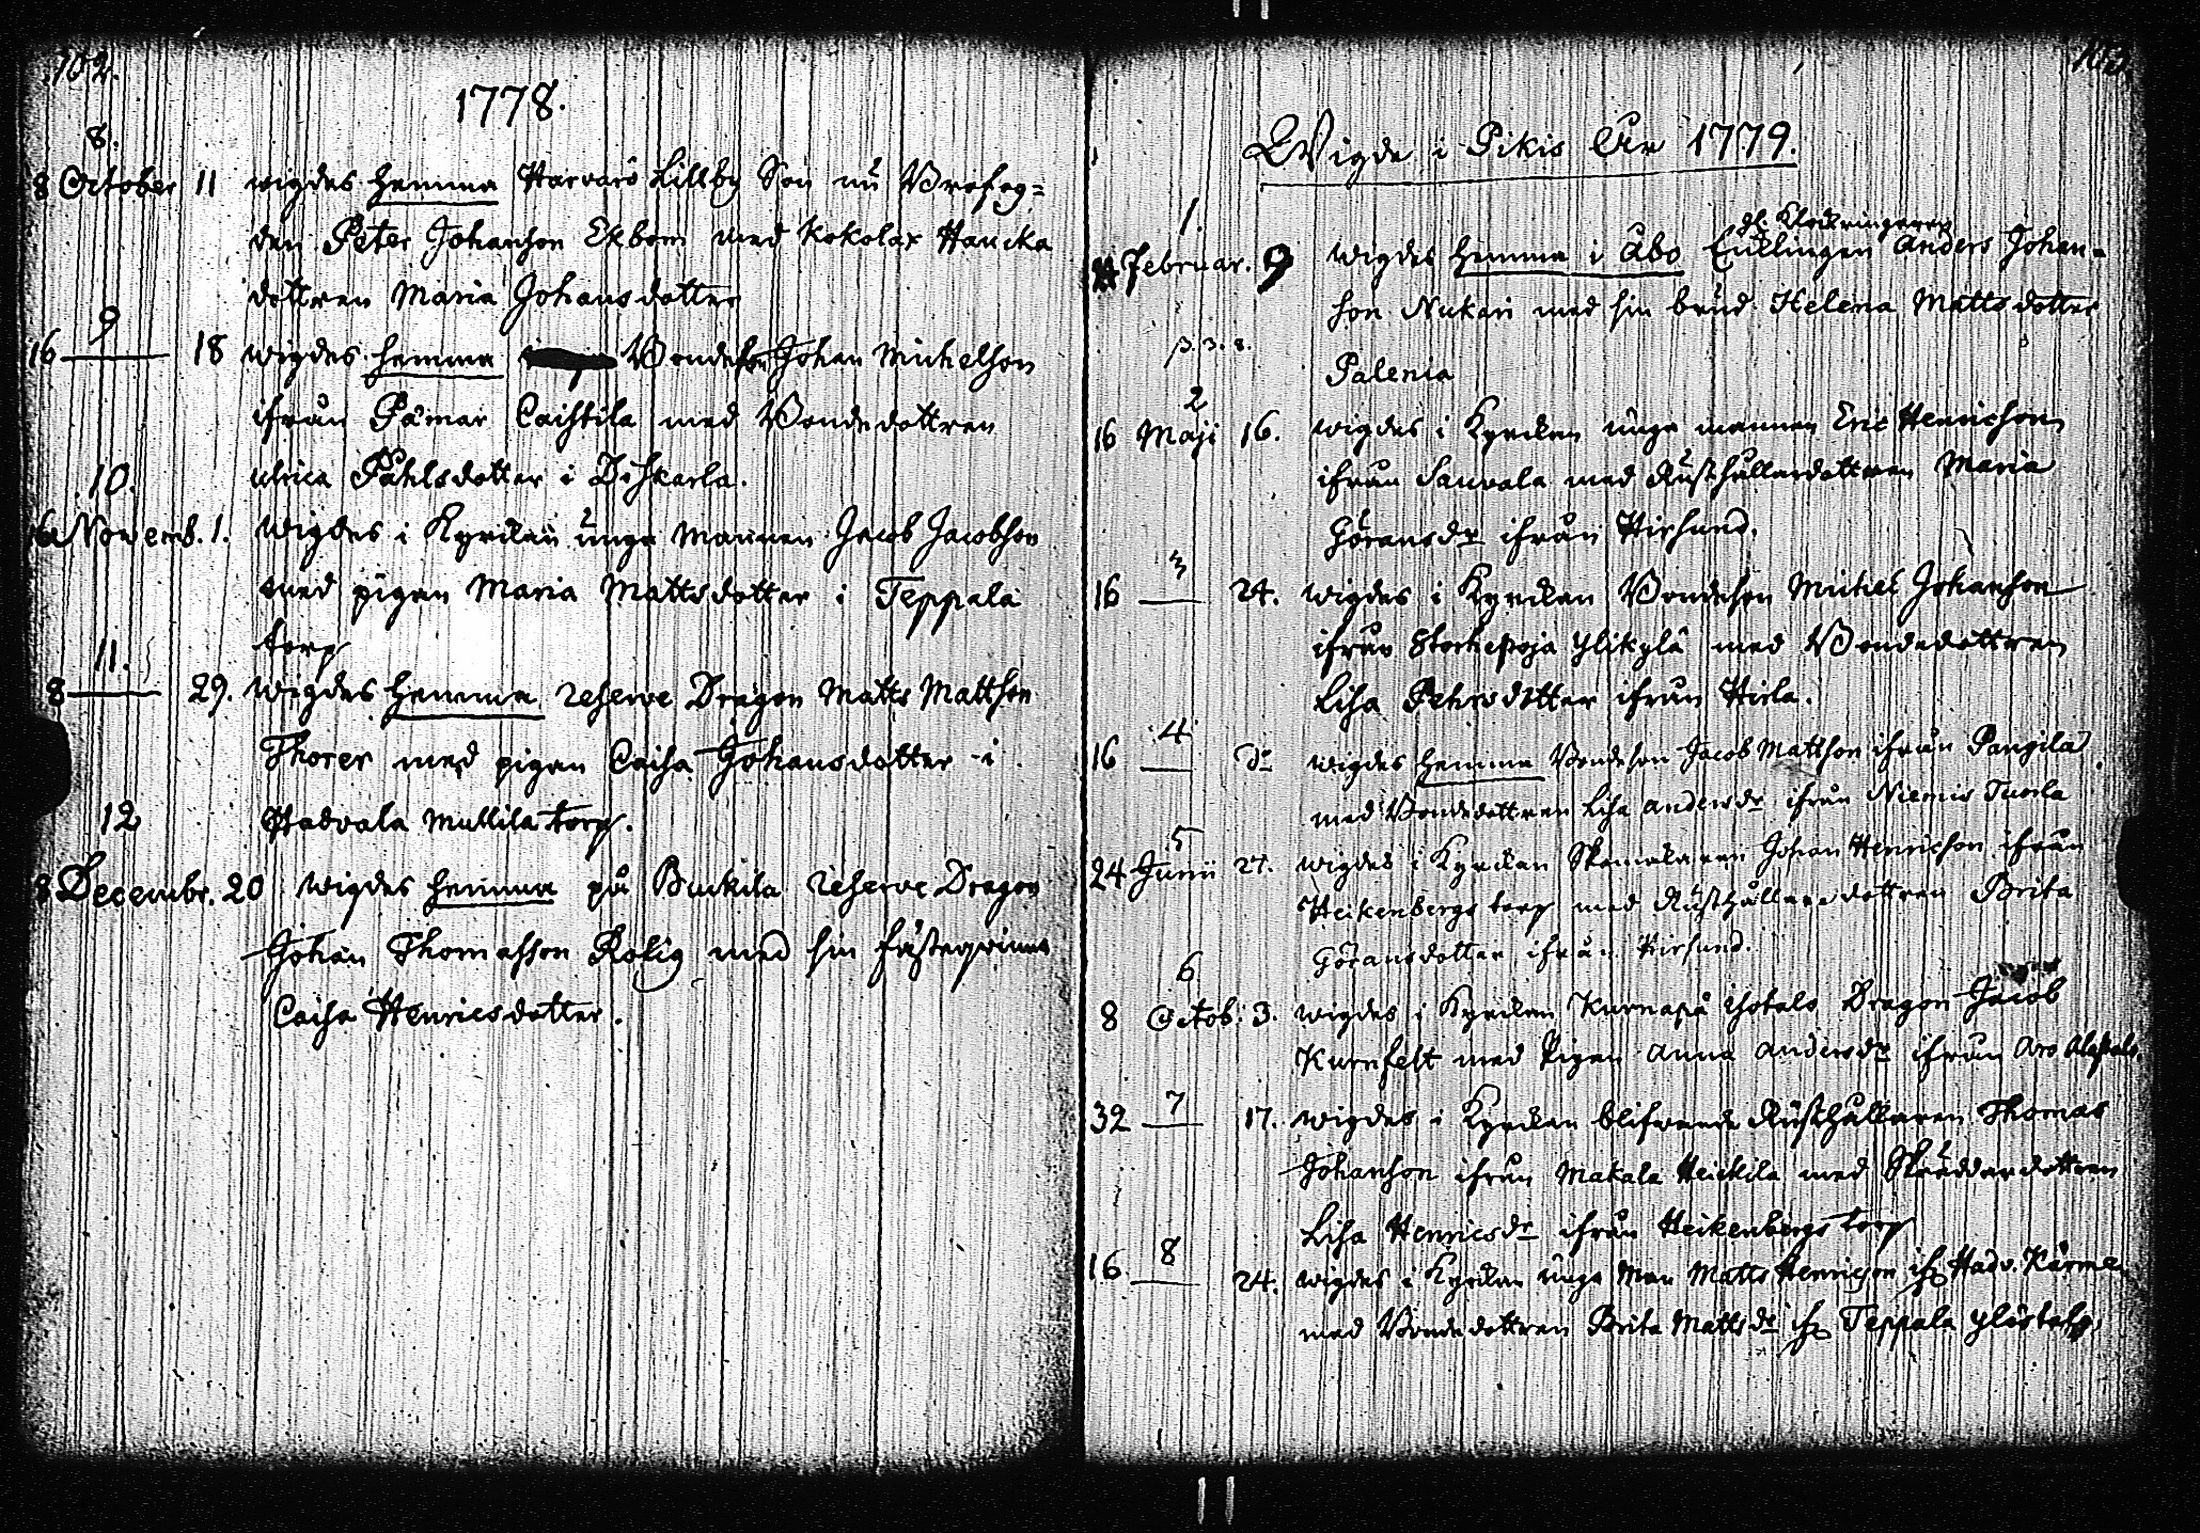 102.
1778.
8.
8 October 11 wigdes hemma Harvarö Lillby Son nu
den Peter Johanson Ekbom med Kokolax Hancka
dottren Maria Johansdotter
9
16 — 18 wigdes hemma Bondeson Johan Michelson
ifrån Pämar Caistila med Bondedottren
Ulrica Påhlsdotter i Diskarla.
10.
16 Novemb. 1. wigdes i Kyrckan unge Mannen Jacob Jacobson
med pigan Maria Mattsdotter i Teppala
torp
11.
8 — 29. wigdes hemma reserve Dragon Matts Mattson
Thorer med pigan Caisa Johansdotter i
Hadvala Mullila torp.
12
8 Decembr. 20 wigdes hemma på Buckila reserve Dragon
Johan Thomasson Rolig med sin fästeqvinna
Caisa Henricsdotter.
103.
Wigde i Pikis År 1779.
1.
Februar. 9 wigdes hemma i Åbo Enklingen Anders Johan-
son Nukari med sin brud Helena Mattsdotter
Palenia
2
16 Maji 16. wigdes i Kyrckan unge mannen Eric Henricson
ifrån Sauvala med Rusthållardottren Maria
Göransdr ifrån Hirsund.
3
16 — 24. wigdes i Kyrckan Bondeson Michel Johanson
ifrån Storhepoja Ylikylä med Bondedottren
Lisa Pehrsdotter ifrån Hirla.
4
16 — do wigdes hemma Bondeson Jacob Mattson ifrån Pangila
med Bondedottren Lisa Andersdr ifrån Niemis Tuorla
5
24 Junii 27. wigdes i Kyrckan Skomakaren Johan Henricson ifrån
Heikenbergs torp med Rusthållaredottren Brita
Göransdotter ifrån Hirsund.
6
8 Octob: 3. wigdes i Kyrckan Kurnapå Dragon Jacob
Kurnfelt med Pigan Anna Andersdr ifrån Aro Alastalo.
7
32 — 17. wigdes i Kyrckan blifwande Rusthållaren Thomas
Johanson ifrån Makala Heickila med Skräddardottren
Lisa Henricsdr ifrån Heikenbergs torp
8
16 — 24. wigdes i Kyrckan unge Man Matts Henricson ifr Hadv. Kärmel
med Bondedottren Brita Mattsdr ifr Teppala Ylöstalo